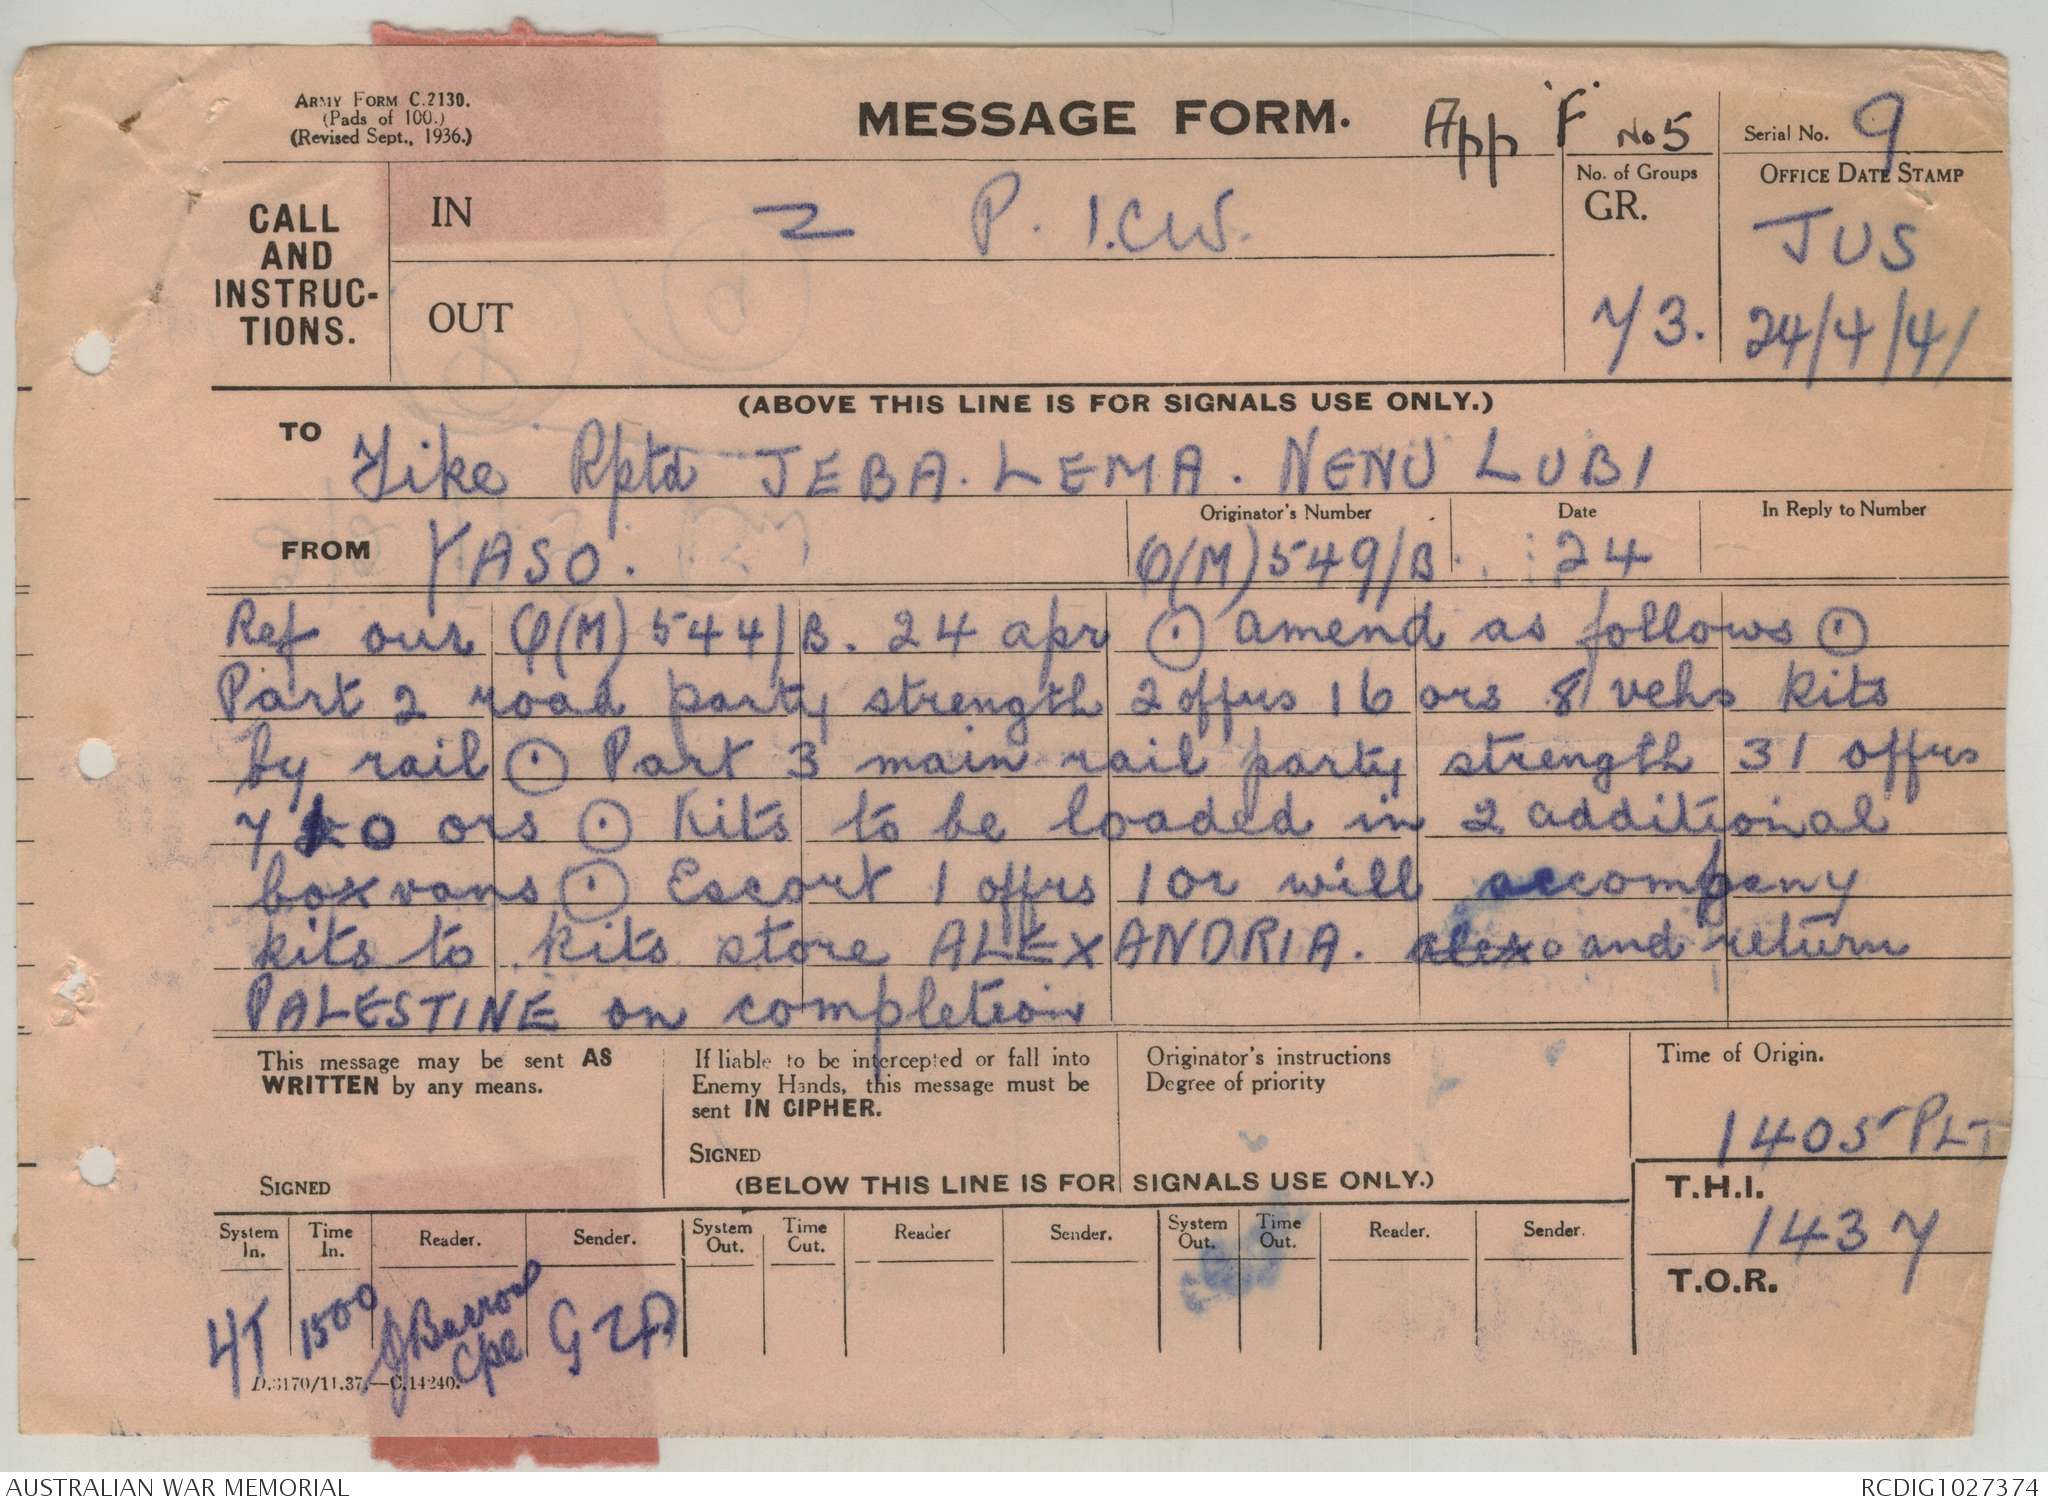 ARMY FORM C.2130.
(Pads of 100.)
(Revised Sept., 1936.)
MESSAGE FORM.
App 'F' No 5
Serial No. 9
CALL AND INSTRUC-TIONS.
IN
P. I.C.W.
OUT
No. of Groups
GR.
73.
OFFICE DATE STAMP
JUS
24/4/41
(ABOVE THIS LINE IS FOR SIGNALS USE ONLY.)
TO Yike Rptd JEBA. LEMA. NENU LUBI
FROM YASO.
Originator's Number
Q(M)549/B.
Date
24
In Reply to Number
Ref our Q(M) 544/B. 24 apr ⊙ amend as follows ⊙
Part 2 road party strength 2 offrs 16 ors 8 vehs kits
by rail ⊙ Part 3 main rail party strength 31 offrs
710 ors ⊙ Kits to be loaded in 2 additional
box vans ⊙ Escort 1 offrs 1 or will accompany
kits to kits store ALEXANDRIA. and return
PALESTINE on completion
This message may be sent AS
WRITTEN by any means.
SIGNED
If liable to be intercepted or fall into
Enemy Hands, this message must be
sent IN CIPHER.
SIGNED
Originator's instructions
Degree of priority
Time of Origin.
1405 PLT
(BELOW THIS LINE IS FOR SIGNALS USE ONLY.)
T.H.I.
1437
T.O.R.
System In. Time In. Reader. Sender. System Out. Time Out. Reader Sender. System Out. Time Out. Reader. Sender.
4T 1500 Cpl
D.8170/11.37.—C.14240.
AUSTRALIAN WAR MEMORIAL
RCDIG1027374